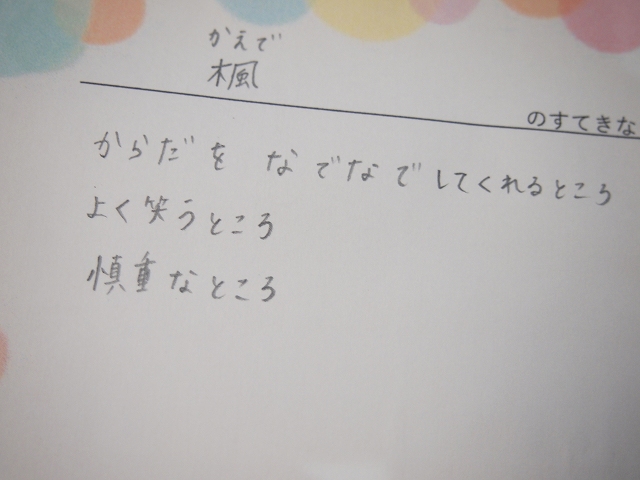 かえで
楓
のすてきな
からだを なでなでしてくれるところ
よく笑うところ
慎重なところ